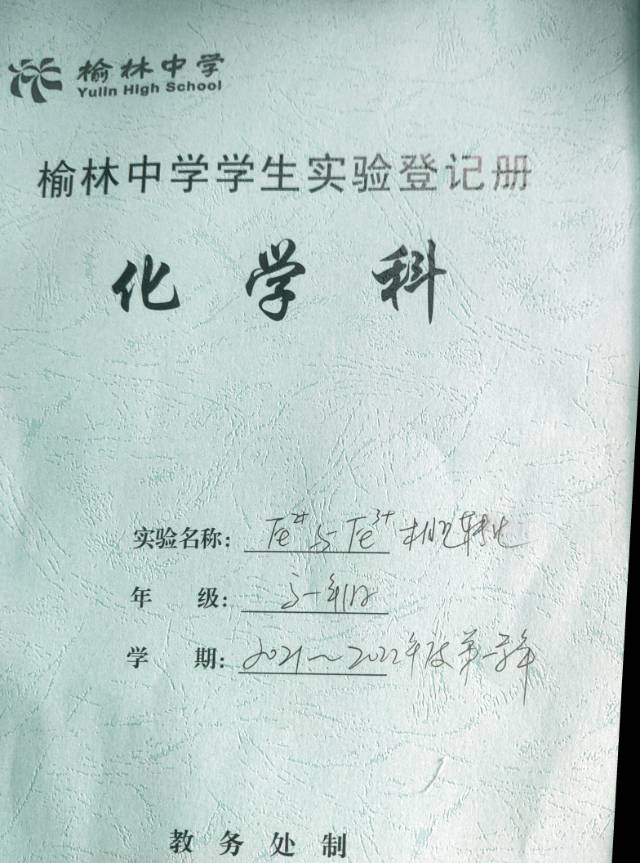 榆林中学
Yulin High School
榆林中学学生实验登记册
化学科
实验名称：Fe²⁺与Fe³⁺相互转化
年级：高一年级
学期：2021～2022年度第一学年
教务处制